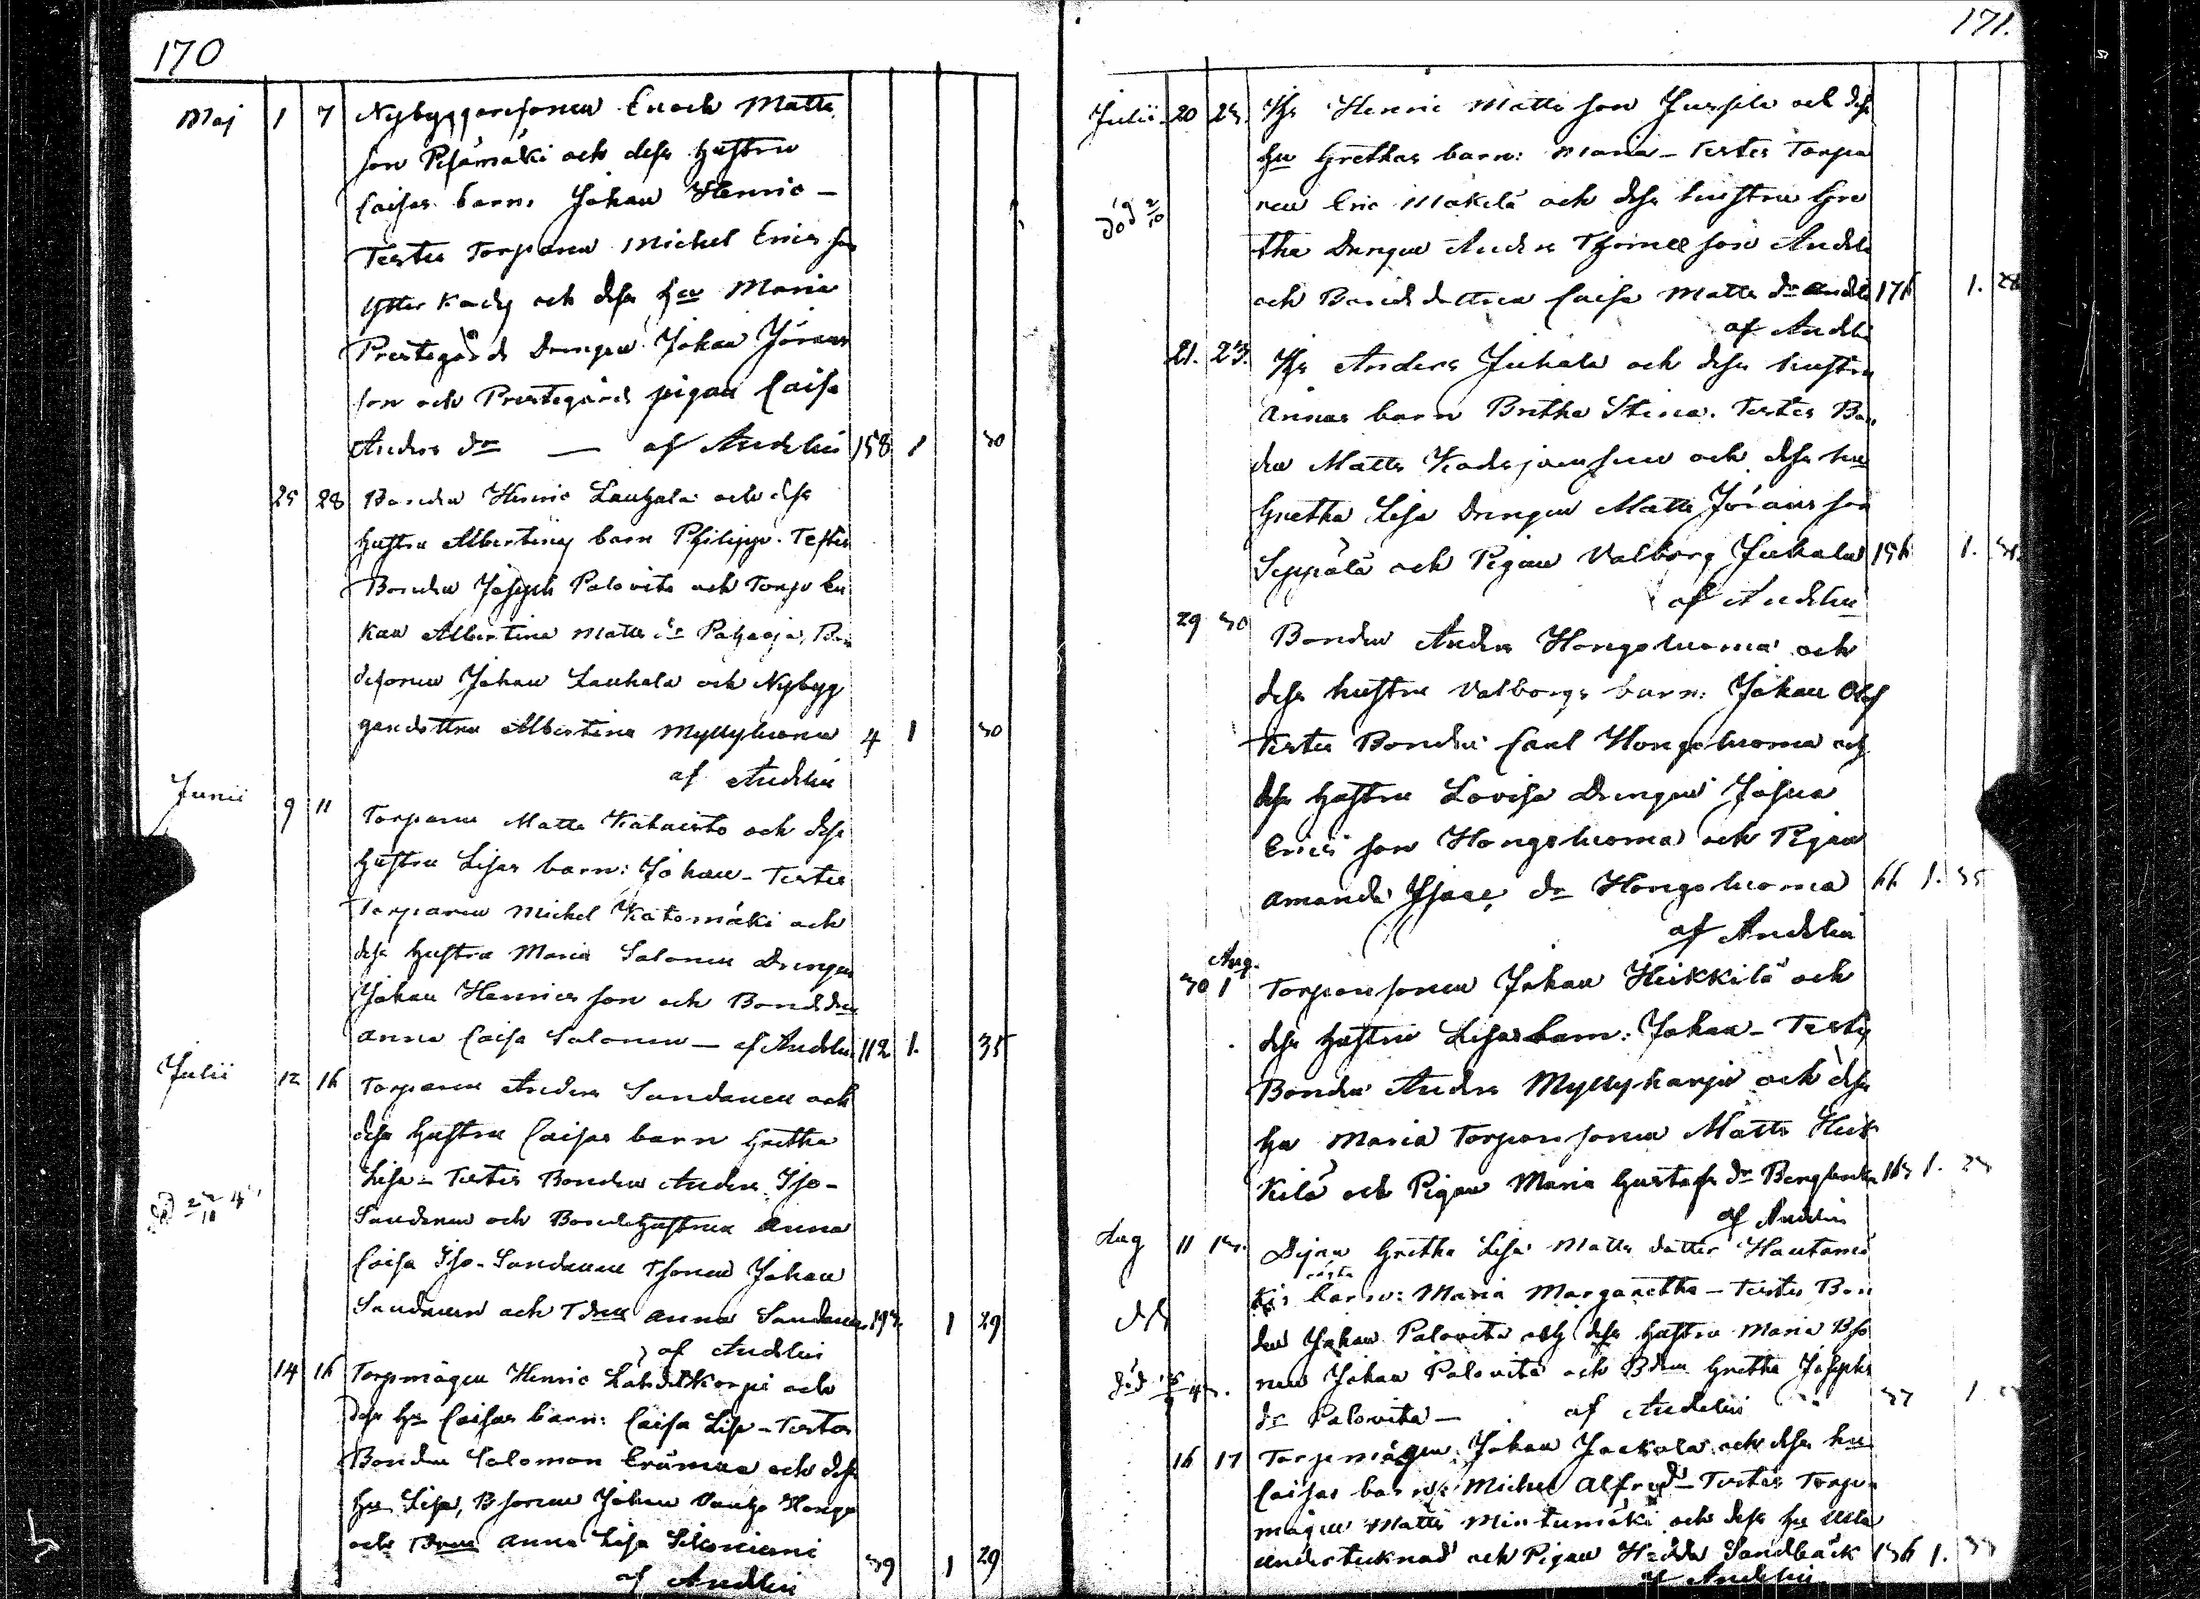 170
Maj 1 7 Nybyggaresonen Enoch Matts
son Pesämäki och dess hustru
Caisas barn: Johan Henric –
Testes Torparen Michel Erics son
Ytter Kady och dess hu Maria
Prestegårds Drengen Johan Jörans
son och Prestegårds pigan Caisa
Anders dr — af Andelin 158 1 30
25 28 Bonden Henric Lauhala och dess
hustru Albertinas barn Philippi. Testes
Bonden Joseph Palovita och Torp En
kan Albertina Matts dr Pahaoja, Bon
desonen Johan Lauhala och Nybyg
garedottren Albertina Myllyluoma 4 1 30
af Andelin
Junii 9 11 Torparen Matts Katucisto och dess
hustru Lisas barn: Johan – Testes
Torparen Michel Katomäki och
dess hustru Maria Salonen Drengen
Johan Henrics son och Bonddren
Anna Caisa Salonen — af Andelin 112 1. 35
Julii 12 16 Torparen Anders Sandanen och
dess hustru Caisas barn Gretha
Lisa – Testes Bonden Anders Iso-
Sandanen och Bondehustrun Anna
Caisa Iso-Sandanen Tsonen Johan
Sandanen och Tdren Anna Sandanen 193. 1 29
af Andelin
14 16 Torpmågen Henric Lähdetkorpi och
dess hu Caisas barn: Caisa Lisa – Testes
Bonden Salomon Erämaa och dess
hu Lisa, Bsonen Johan Hongo
och Tdren Anna Lisa 39 1 29
af Andelin
171.
Julii 20 23. Hr Henric Matts son Jussila och dess
hu Grethas barn: Maria – Testes Torpa
ren Eric Mäkelä och dess hustru Gre
död 2/10
tha Drengen Anders Thomas son Andela
och Bondedottren Caisa Matts dr Andela 176 1. 28
af Andelin
21. 23. Anders Juhala och dess hustru
Annas barn Britha Stina. Testes Bon
den Matts och dess hu
Gretha Lisa Drengen Matts Jörans son
Seppälä och Pigan Valborg Juhala 156 1.
af Andelin
29 30 Bonden Anders Hongoluoma och
dess hustru Valborgs barn: Johan Olof
Testes Bonden Carl Hongoluoma och
dess hustru Lovisa Drengen Josua
Erics son Hongoluoma och Pigan
Amanda Isacs dr Hongoluoma 66 1. 35
af Andelin
Aug.
30 1 Torparesonen Johan Heikkilä och
dess hustru Lisas barn: Johan – Testes
Bonden Anders Myllyharju och dess
hu Maria Torparesonen Matts Heik
kilä och Pigan Maria Gustafs dr 163 1. 33
af Andelin
Aug 11 13. Pigan Gretha Lisa Matts dotter Hautamä
kis oägta barn: Maria Margaretha – Testes Bon
den Johan Palovita och dess hustru Maria Bso
nen Johan Palovita och Bdren Gretha Josephs
dr Palovita — af Andelin 37 1.
16 17 Torpmågen Johan Jackola och dess hu
Caisas barn: Michel Alfred – Testes Torp
mågen Matts Mintumäki och dess hu Ulla
undertecknad och Pigan Hedda Sandbäck 136 1. 33
af Andelin